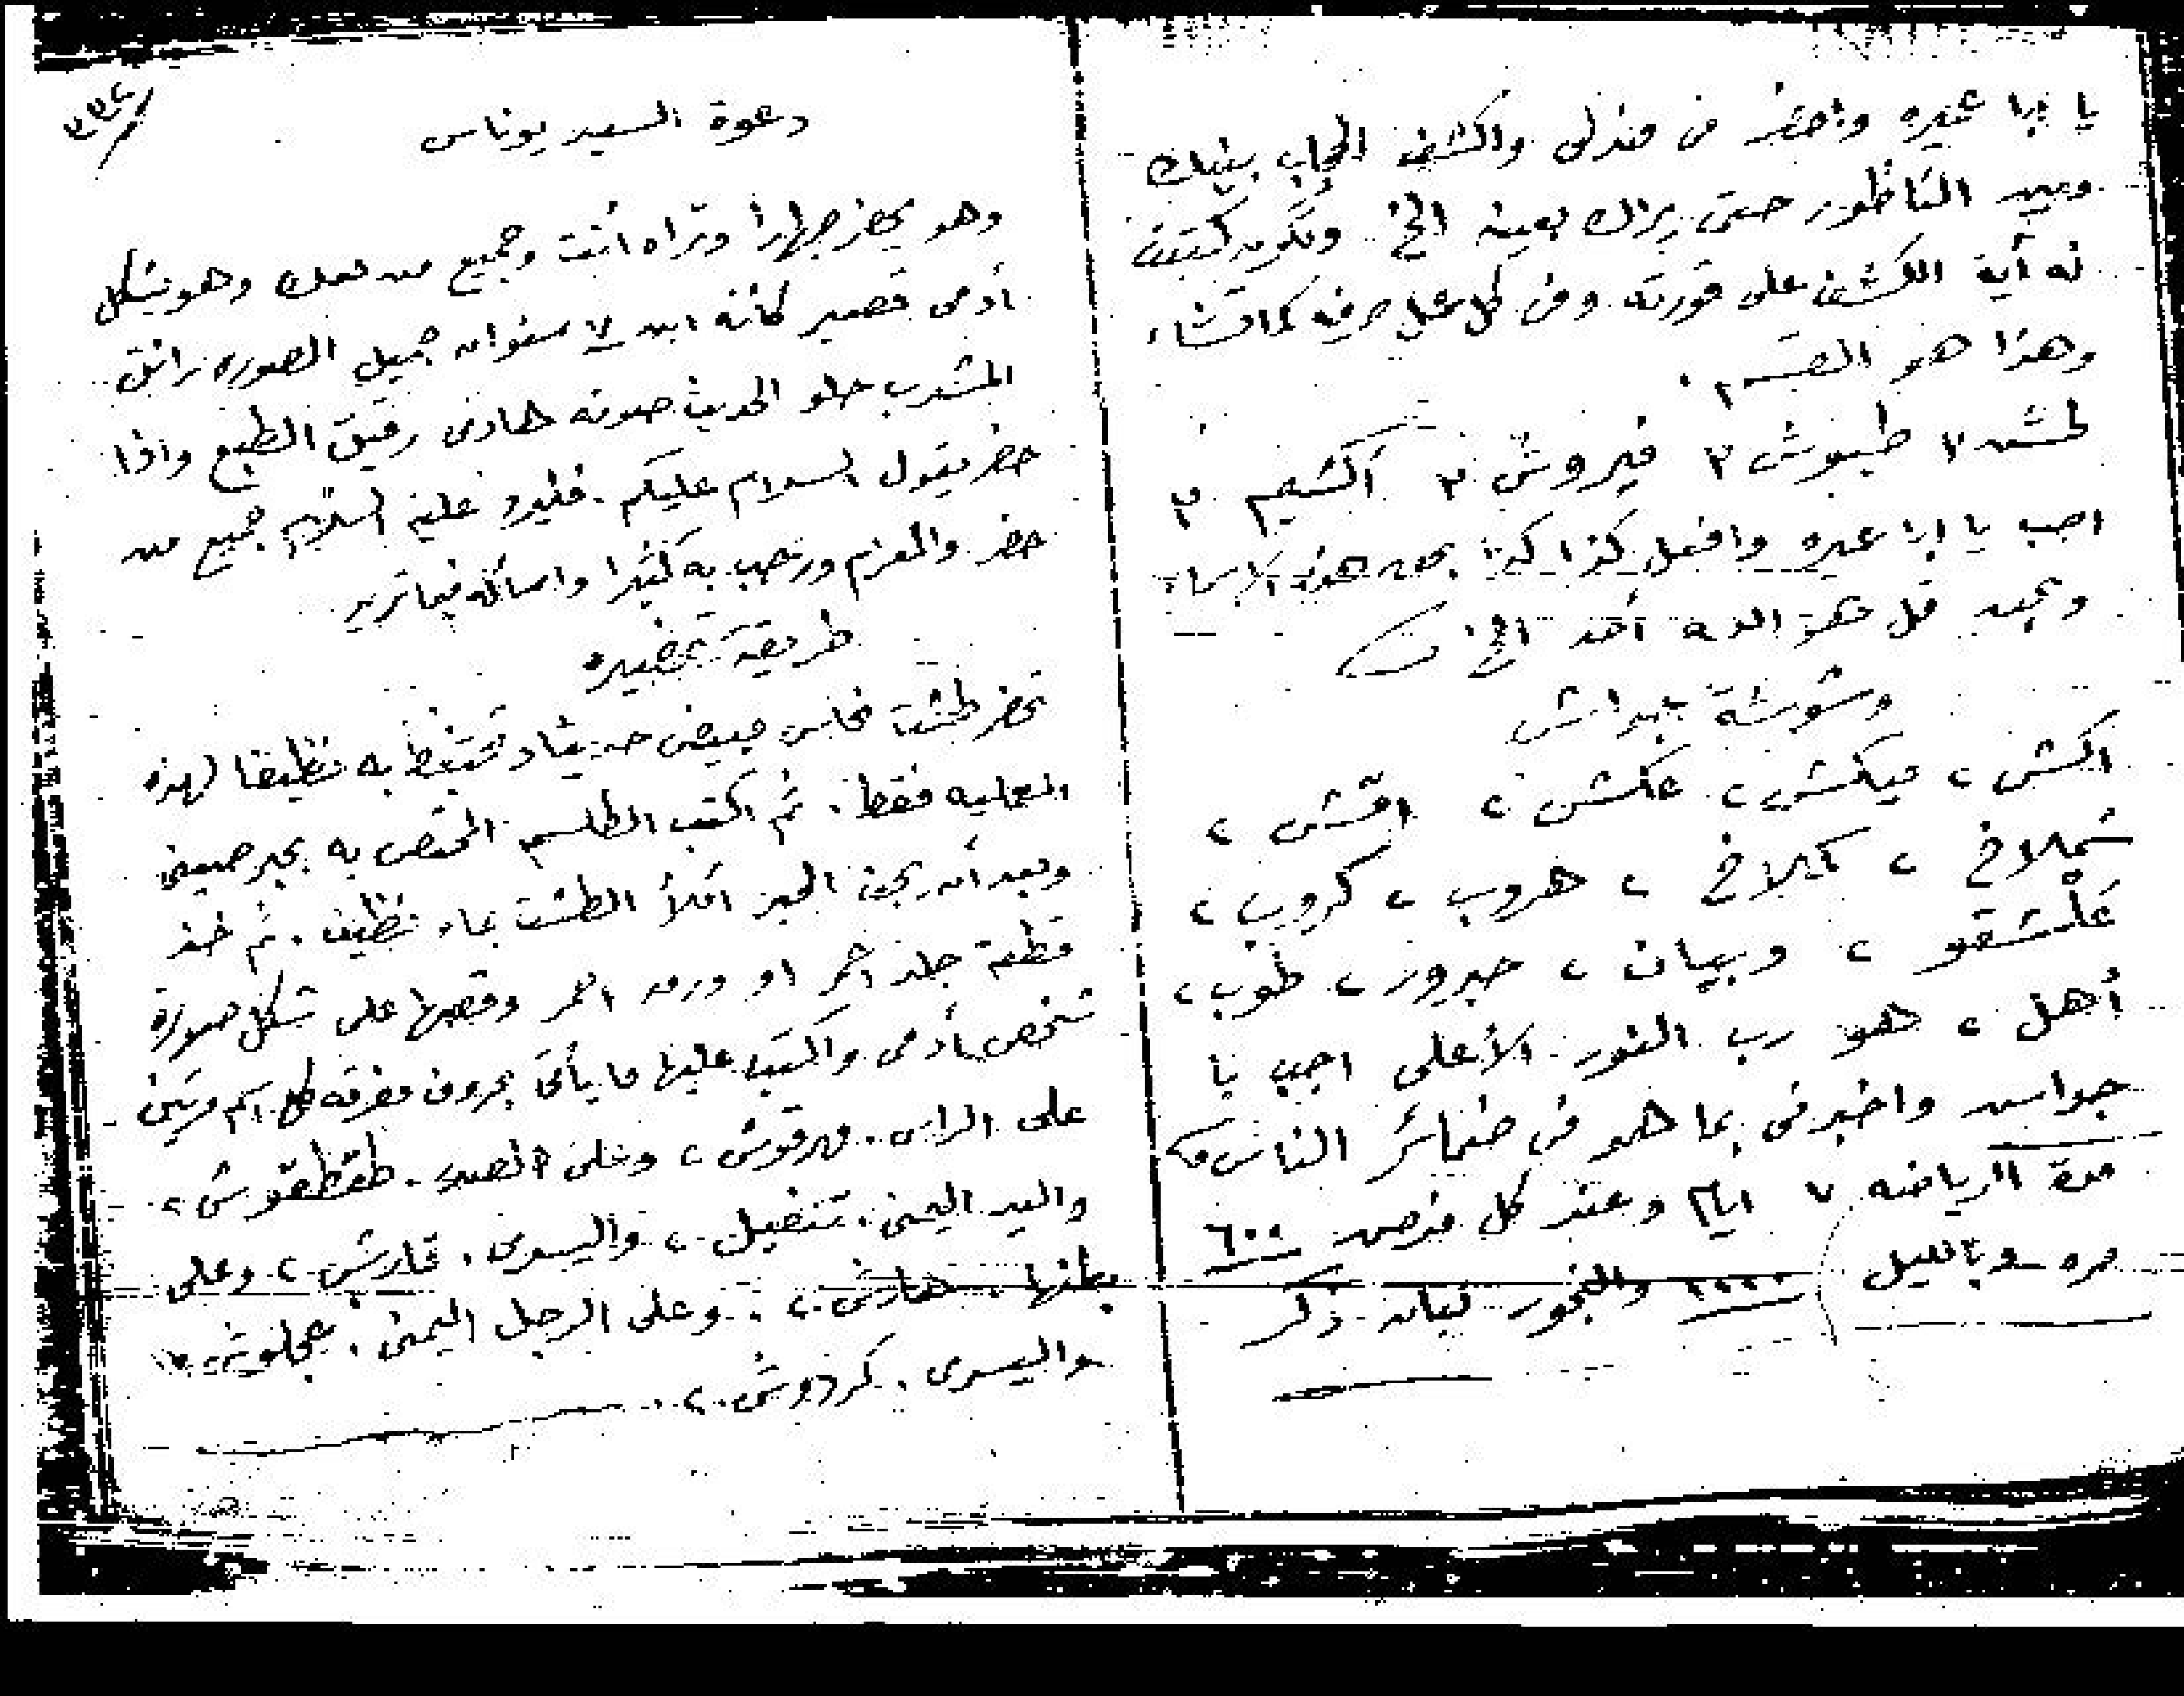 يا ابا عميره واحضر فى مندلى واكشف الحجاب بينك
وبين الناظور حتى يراك بعينه الخ. وتكون كتبت
له آية الكشف على قورته وفى كل عمل صرفه كما تشاء
وهذا هو القسم.
لطشد ٢ طيوش ٢ فيروش ٢ اكشيم ٢
اجب يا ابا عميره وافعل كذا كذا بحق هذه الاسماء
وبحق قل هو الله أحد الخ
وشوشة جبراس
اكش ، ميكش ، عكش ، اقش ،
شملاخ ، كملاخ ، هروب ، كروب ،
علشقو ، وبيان ، جبرور ، طوب ،
أهل ، هو رب النور الأعلى اجب يا
جواس واخبرنى بما هو فى ضمائر الناس
مدة الرياضه ٧ ايام وعند كل فرض ٦٠٠
مره وبالليل والبخور لبان ذكر
٣٣٤
دعوة السيد يوناس
وهو يحضر جهارا وتراه أنت وجميع من معك وهو بشكل
آدمى قصير كأنه ابن ٧ سنوات جميل الصوره رائق
المشرب حلو الحديث صوته هادى رقيق الطبع واذا
حضر يقول السلام عليكم. فليرد عليه السلام جميع من
حضر والمعزم ورحب به كثيرا واسأله فيما تريد
طريقة تحضيره
تحضر طشت نحاس مبيض حديثا وتحتفظ به نظيفا لهذه
العمليه فقط. ثم اكتب الطلسم المختص به بحبر صينى
وبعد أن يجف الحبر املأ الطشت بماء نظيف. ثم خذ
قطعة جلد احمر او ورق احمر وقصها على شكل صورة
شخص آدمى واكتب عليها ما يأتى بحروف مفرقه كل اسم مرتين
على الراس. مهرقوش ، وعلى الصدر. طقطقوش ،
واليد اليمنى. تنفيل ، واليسرى. قارش ، وعلى
بطنها. هارش ، وعلى الرجل اليمنى. عجلوش ،
واليسرى. كردوش ،